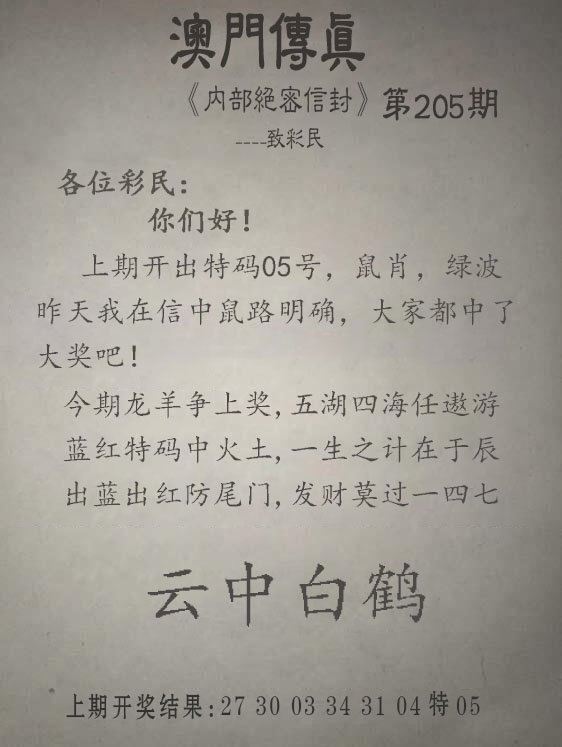 澳門傳眞
《内部絕密信封》第205期
----致彩民
各位彩民：
你们好！
上期开出特码05号，鼠肖，绿波
昨天我在信中鼠路明确，大家都中了
大奖吧！
今期龙羊争上奖,五湖四海任遨游
蓝红特码中火土,一生之计在于辰
出蓝出红防尾门,发财莫过一四七
云中白鹤
上期开奖结果:27 30 03 34 31 04 特 05